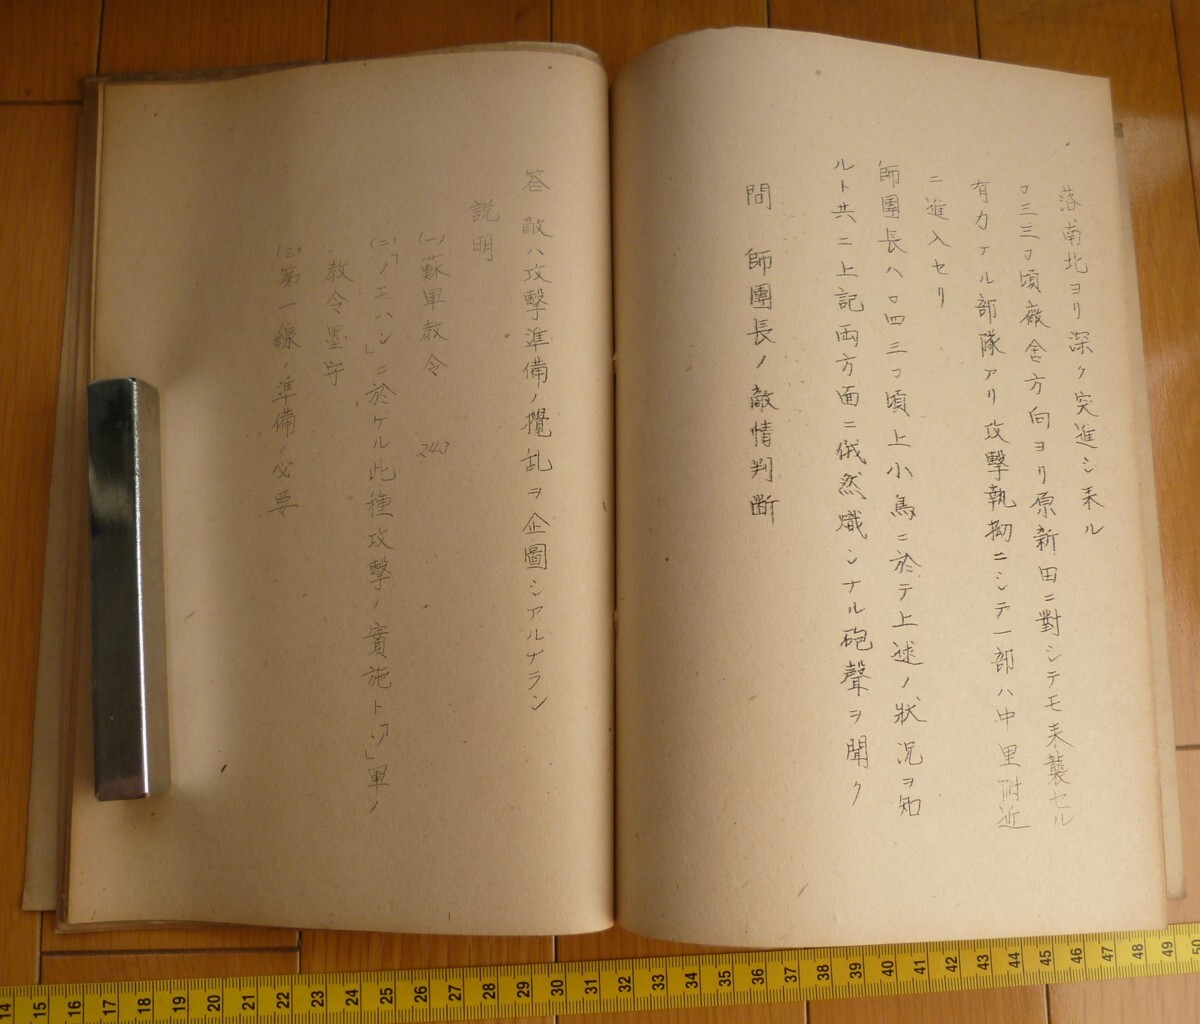 落南北ヨリ深ク突進シ来ル
〇三三〇頃廠舎方向ヨリ原新田ニ對シテモ来襲セル
有力ナル部隊アリ攻撃執拗ニシテ一部ハ中里附近
ニ進入セリ
師團長ハ〇四三〇頃上小鳥ニ於テ上述ノ状況ヲ知
ルト共ニ上記両方面ニ俄然熾ンナル砲聲ヲ聞ク
問 師團長ノ敵情判断
答 敵ハ攻撃準備ノ攪乱ヲ企圖シアルナラン
説明
(一)蘇軍教令 243
(二)「ノエハン」ニ於ケル此種攻撃ノ實施ト「ソ」軍ノ
教令墨守
(三)第一線ノ準備ノ必要
14 15 16 17 18 19 20 21 22 23 24 25 26 27 28 29 30 31 32 33 34 35 36 37 38 39 40 41 42 43 44 45 46 47 48 49 50